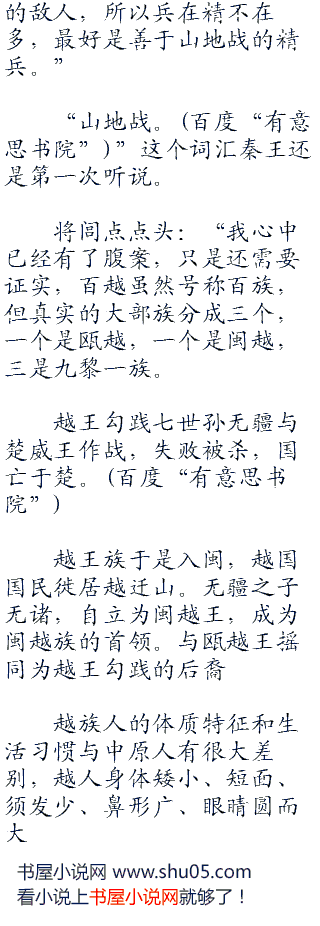 的敌人，所以兵在精不在
多，最好是善于山地战的精
兵。”
“山地战。(百度“有意
思书院”)”这个词汇秦王还
是第一次听说。
将闾点点头：“我心中
已经有了腹案，只是还需要
证实，百越虽然号称百族，
但真实的大部族分成三个，
一个是瓯越，一个是闽越，
三是九黎一族。
越王勾践七世孙无疆与
楚威王作战，失败被杀，国
亡于楚。(百度“有意思书
院”)
越王族于是入闽，越国
国民徙居越迁山。无疆之子
无诸，自立为闽越王，成为
闽越族的首领。与瓯越王摇
同为越王勾践的后裔
越族人的体质特征和生
活习惯与中原人有很大差
别，越人身体矮小、短面、
须发少、鼻形广、眼睛圆而
大
书屋小说网 www.shu05.com
看小说上书屋小说网就够了！